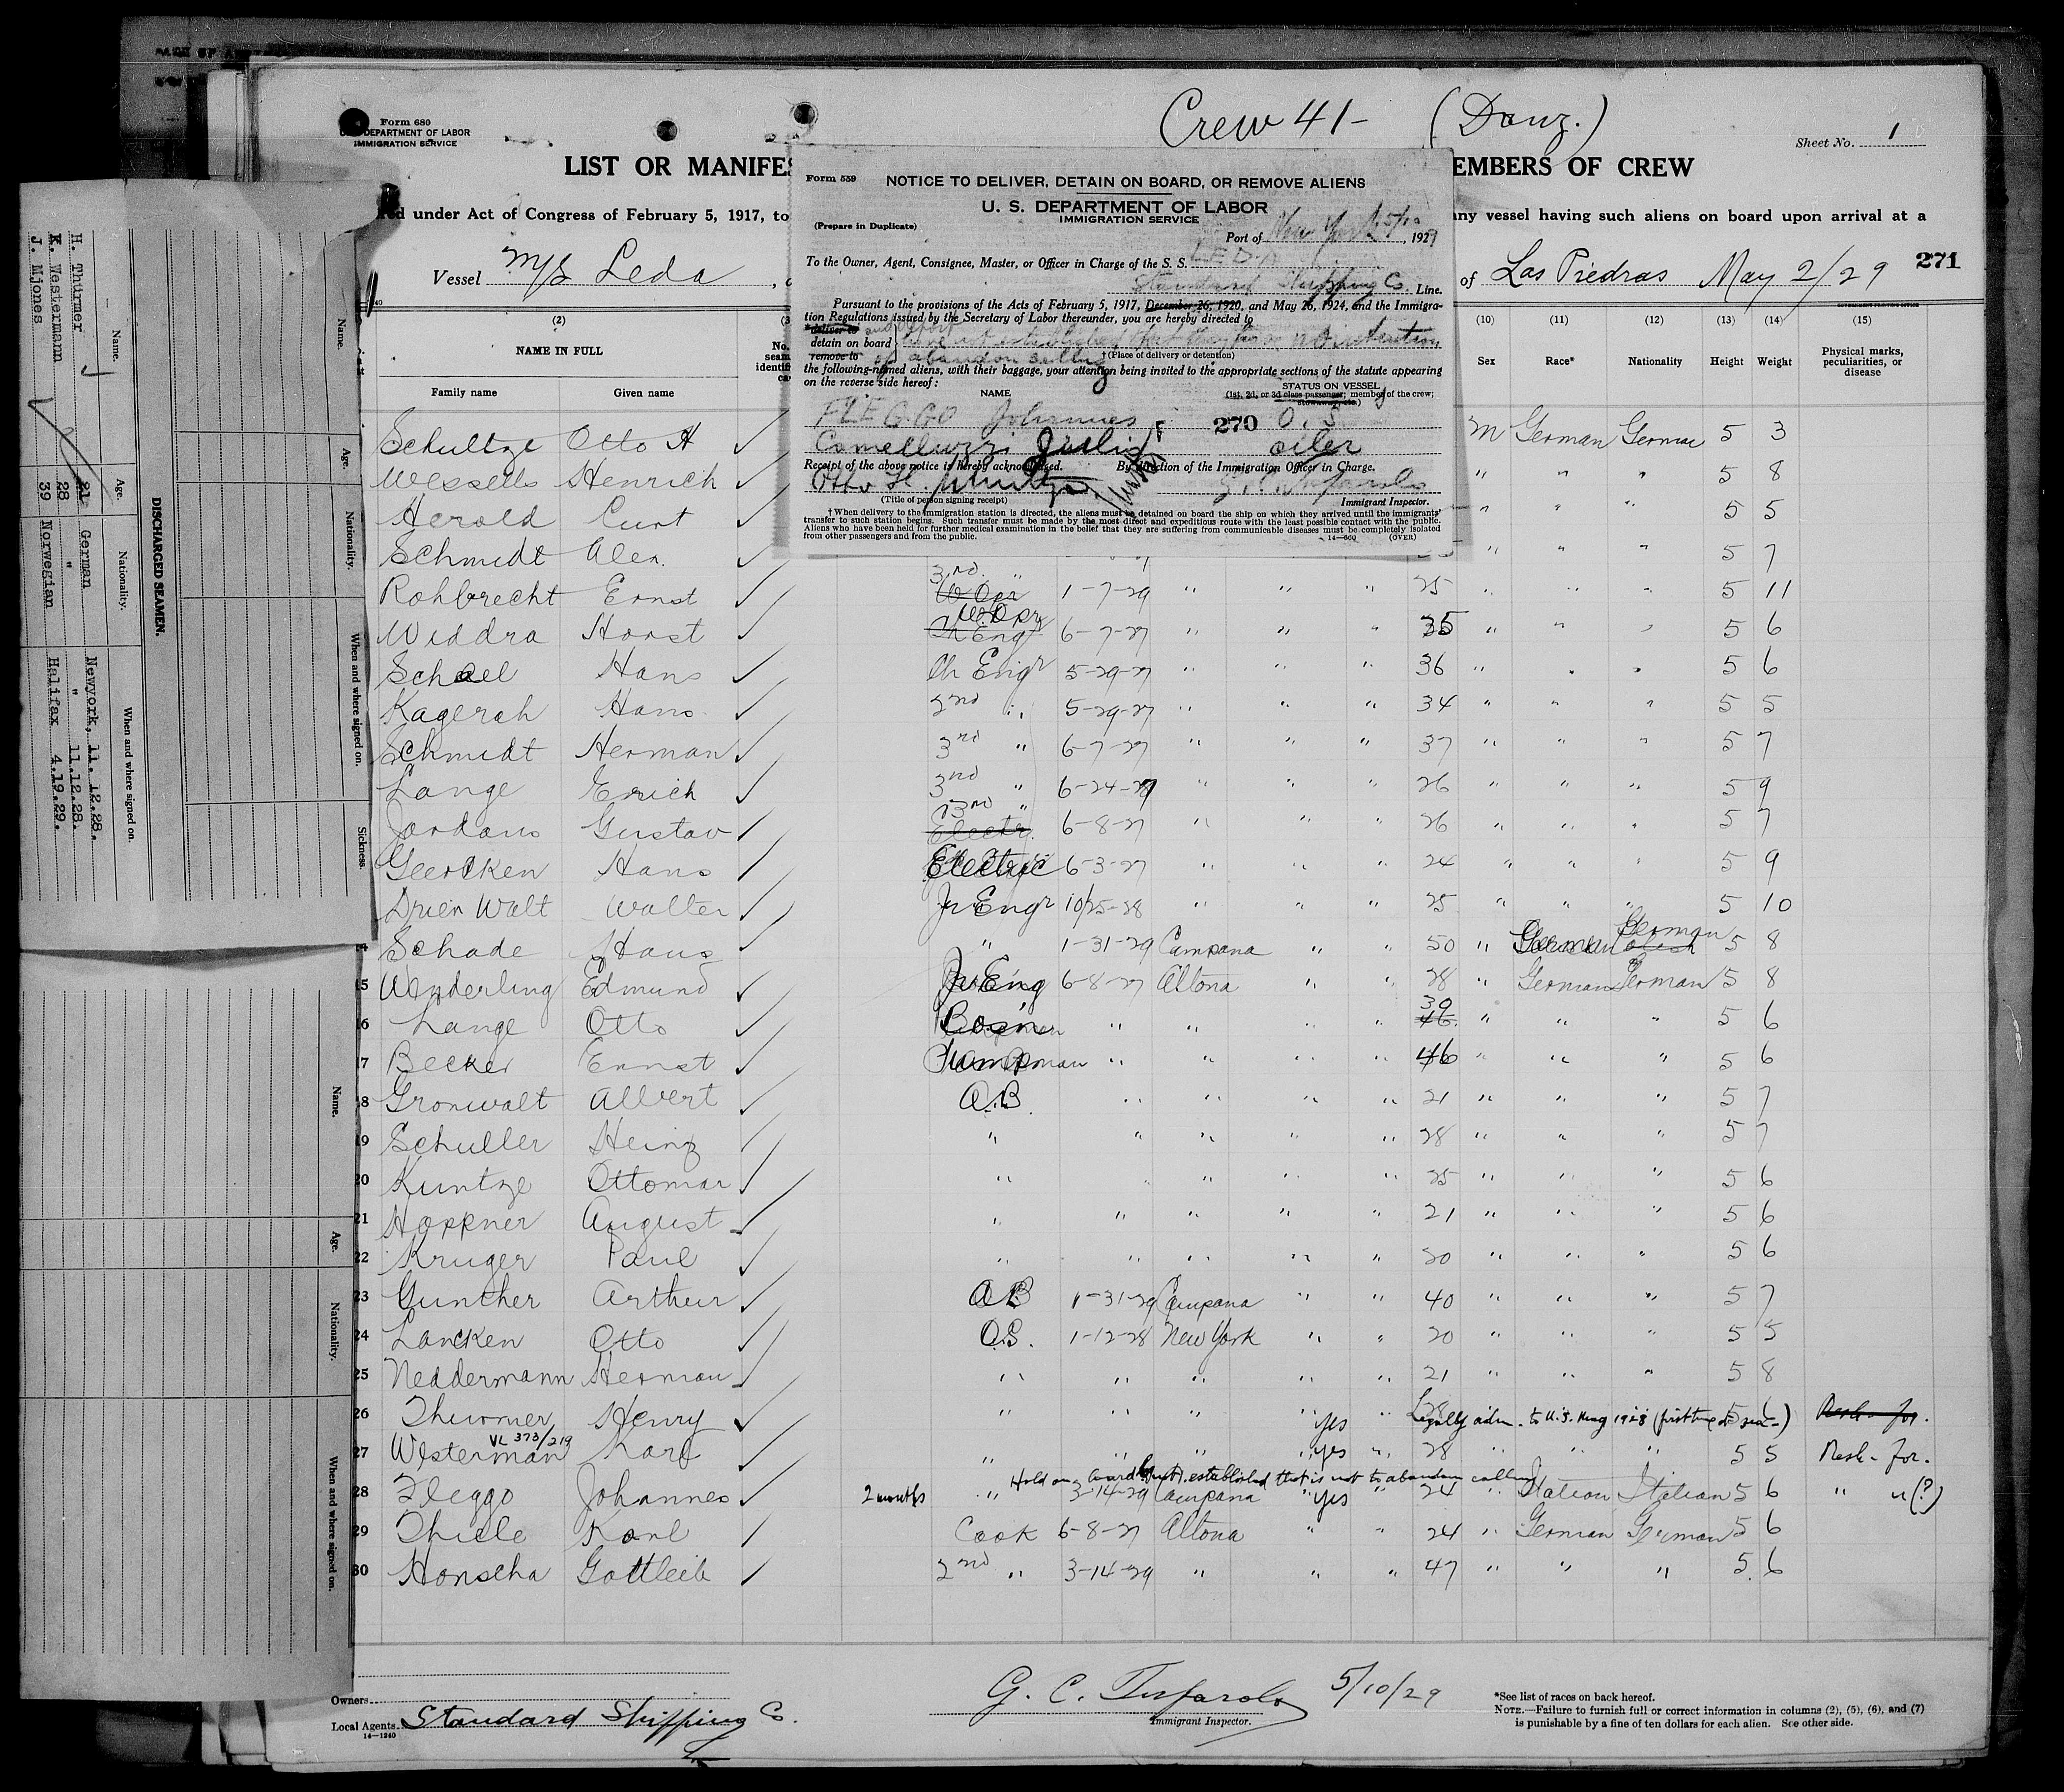 Crew 41- (Danz.)
Form 680
DEPARTMENT OF LABOR
IMMIGRATION SERVICE
Sheet No. 1
LIST OR MANIFES
EMBERS OF CREW
under Act of Congress of February 5, 1917, to
any vessel having such aliens on board upon arrival at a
Vessel M/S Leda
of Las Piedras May 2/29
271
Form 559
NOTICE TO DELIVER, DETAIN ON BOARD, OR REMOVE ALIENS
U. S. DEPARTMENT OF LABOR
IMMIGRATION SERVICE
(Prepare in Duplicate)
Port of New York 5/10, 1929
To the Owner, Agent, Consignee, Master, or Officer in Charge of the S. S. LEDA
Standard Shipping Co. Line.
Pursuant to the provisions of the Acts of February 5, 1917, December 26, 1920, and May 26, 1924, and the Immigra-
tion Regulations issued by the Secretary of Labor thereunder, you are hereby directed to
deliver to
detain on board have not established that they have no intention
remove to of abandon calling †(Place of delivery or detention)
the following-named aliens, with their baggage, your attention being invited to the appropriate sections of the statute appearing
on the reverse side hereof:
NAME
STATUS ON VESSEL
(1st, 2d, or 3d class passenger; member of the crew; stowaway, etc.)
FLEGGO Johannes 270 O.S
Comelluzzi Giulio oiler
Receipt of the above notice is hereby acknowledged. By direction of the Immigration Officer in Charge.
Otto H. Schultze
(Title of person signing receipt) Immigrant Inspector.
†When delivery to the immigration station is directed, the aliens must be detained on board the ship on which they arrived until the immigrants'
transfer to such station begins. Such transfer must be made by the most direct and expeditious route with the least possible contact with the public.
Aliens who have been held for further medical examination in the belief that they are suffering from communicable diseases must be completely isolated
from other passengers and from the public. 14—660 (OVER)
(2) (10) (11) (12) (13) (14) (15)
NAME IN FULL Sex Race* Nationality Height Weight Physical marks, peculiarities, or disease
Family name Given name
Schultze Otto H M German German 5 3
Wessells Henrich " " " 5 8
Herold Curt " " " 5 5
Schmidt Alex. " " " 5 7
Rohbrecht Ernst 3rd " 1-7-29 " " " 25 " " " 5 11
Widdra Horst W.Opr 6-7-27 " " " 35 " " " 5 6
Schael Hans Ch Engr 5-29-27 " " " 36 " " " 5 6
Kagerah Hans 2nd " 5-29-27 " " " 34 " " " 5 5
Schmidt Herman 3rd " 6-7-27 " " " 37 " " " 5 7
Lange Erich 3rd " 6-24-27 " " " 26 " " " 5 9
Jordans Gustav 3rd " Electr. 6-8-27 " " " 26 " " " 5 7
Geercken Hans Electric 6-3-27 " " " 24 " " " 5 9
Drien Walt Walter Jr Engr 10/25-28 " " " 25 " " " 5 10
Schade Hans " 1-31-29 Campana " " 50 " German German 5 8
15 Wunderling Edmund Jr Eng 6-8-27 Altona " " 28 " German German 5 8
16 Lange Otto Bosn " " " " 39 46 " " " 5 6
17 Becker Ernst Pumpman " " " " 46 " " " 5 6
18 Gronwalt Albert A.B. " " " " 21 " " " 5 7
19 Schuller Heinz " " " " " 28 " " " 5 7
20 Kuntze Ottomar " " " " " 25 " " " 5 6
21 Hoppner August " " " " " 21 " " " 5 6
22 Kruger Paul " " " " " 20 " " " 5 6
23 Gunther Arthur AB 1-31-29 Campana " " 40 " " " 5 7
24 Lancken Otto O.S. 1-12-28 New York " " 20 " " " 5 5
25 Neddermann Herman " " " " " 21 " " " 5 8
26 Thurmer Henry " " " yes Legally adm. to U.S. Aug 1928 (first time at sea-) 5 6
VL 373/219
27 Westerman Karl " " " " yes " 28 " " " 5 5 Resh. for.
Hold on board (but) established that is not to abandon calling
28 Fleggo Johannes 2 months " 3-14-29 Campana " yes " 24 " Italian Italian 5 6 " "(?)
29 Thiele Karl Cook 6-8-27 Altona " " 24 " German German 5 6
30 Honscha Gottleib 2nd " 3-14-29 " " " 47 " " " 5 6
Owners
Local Agents. Standard Shipping Co.
14—1240
G. C. Tufarolo 5/10/29
Immigrant Inspector.
*See list of races on back hereof.
NOTE.—Failure to furnish full or correct information in columns (2), (5), (6), and (7)
is punishable by a fine of ten dollars for each alien. See other side.
DISCHARGED SEAMEN.
Name. Age. Nationality. When and where signed on.
H. Thürmer 21 German Newyork, 11.12.28.
K. Westermann 28 " " 11.12.28.
J. Mjones 39 Norwegian Halifax 4.19.29.
Name. Age. Nationality. When and where signed on. Sickness.
Name. Age. Nationality. When and where signed on.